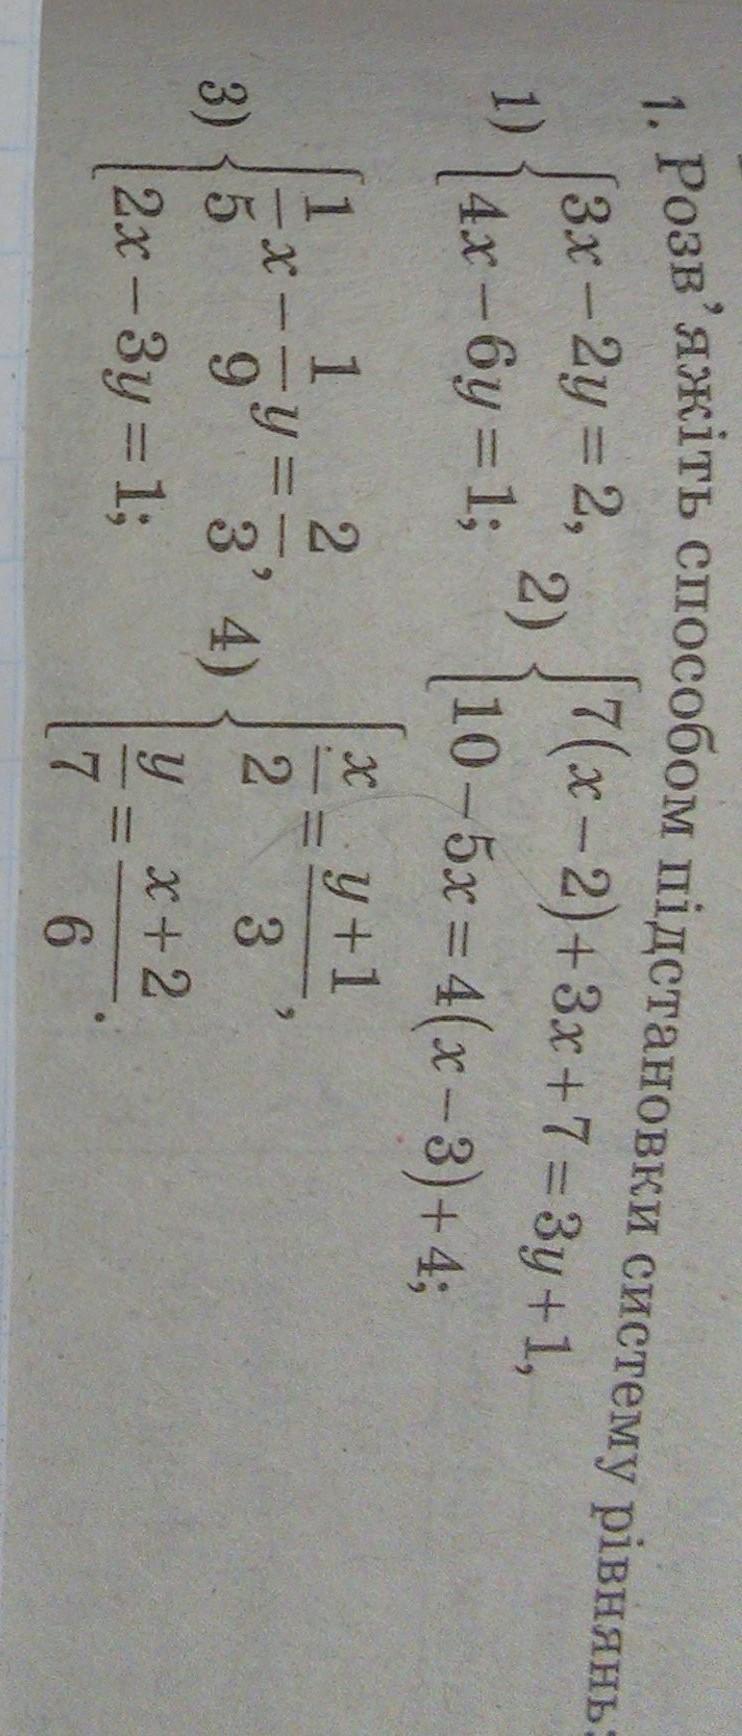 1. Розв'яжіть способом підстановки систему рівнянь:
1) {3x − 2y = 2, 2) {7(x − 2) + 3x + 7 = 3y + 1,
4x − 6y = 1; 10 − 5x = 4(x − 3) + 4;
3) {1/5 x − 1/9 y = 2/3, 4) {x/2 = (y + 1)/3,
2x − 3y = 1; y/7 = (x + 2)/6.